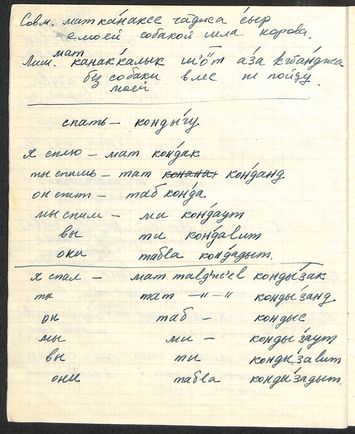 Совм. мат ка́наксе та́джса сы́р
с моей собакой шла корова.
мат
Лиш. кана́ккалык шо̄т а́за
без собаки в лес не пойду
моей
спать – конды́гу
я сплю – мат ко́ндак
ты спишь – тат конданд
он спит – таб ко́нда
мы спим – ми конда́ут
вы ти конда́лит
они табла конда́дыт.
я спал – мат конды́зак
ты тат –"–"– конды́занд
он таб – конды́с
мы ми – конды́заут
вы ти конды́залит
они табла конды́задыт